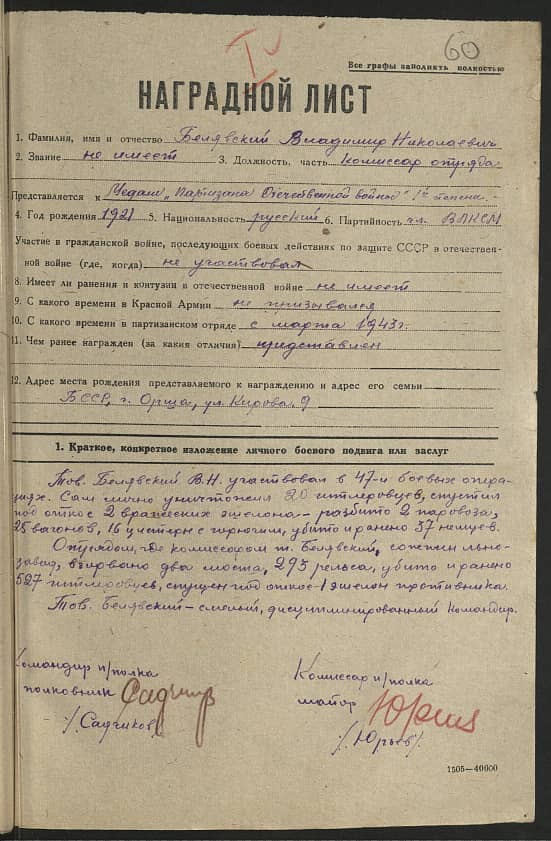 IV
60
Все графы заполнять полностью
НАГРАДНОЙ ЛИСТ
1. Фамилия, имя и отчество Белявский Владимир Николаевич
2. Звание не имеет 3. Должность, часть комиссар отряда
Представляется к Медали „Партизана Отечественной войной" 1й степени.-
4. Год рождения 1921 5. Национальность русский 6. Партийность чл. ВЛКСМ
Участие в гражданской войне, последующих боевых действиях по защите СССР в отечествен-
ной войне (где, когда) не участвовал
8. Имеет ли ранения и контузии в отечественной войне не имеет
9. С какого времени в Красной Армии не призывался
10. С какого времени в партизанском отряде с марта 1943г.
11. Чем ранее награжден (за какия отличия) представлен
12. Адрес места рождения представляемого к награждению и адрес его семьи
БССР, г. Орша, ул. Кирова 9
1. Краткое, конкретное изложение личного боевого подвига или заслуг
Тов. Белявский В.Н. участвовал в 47-и боевых опера-
циях. Сам лично уничтожил 20 гитлеровцев, спустил
под откос 2 вражеских эшелона - разбито 2 паровоза,
25 вагонов, 16 цистерн с горючим, убито и ранено 37 немцев.
Отрядом, где комиссаром т. Белявский, сожжен льно-
завод, взорвано два моста, 295 рельса, убито и ранено
527 гитлеровцев, спущен под откос - 1 эшелон противника.
Тов. Белявский - смелый, дисциплинированный командир.
Командир п/полка
полковник Садчиков
/Садчиков/
Комиссар п/полка
майор Юрьев
/Юрьев/
1505—40000